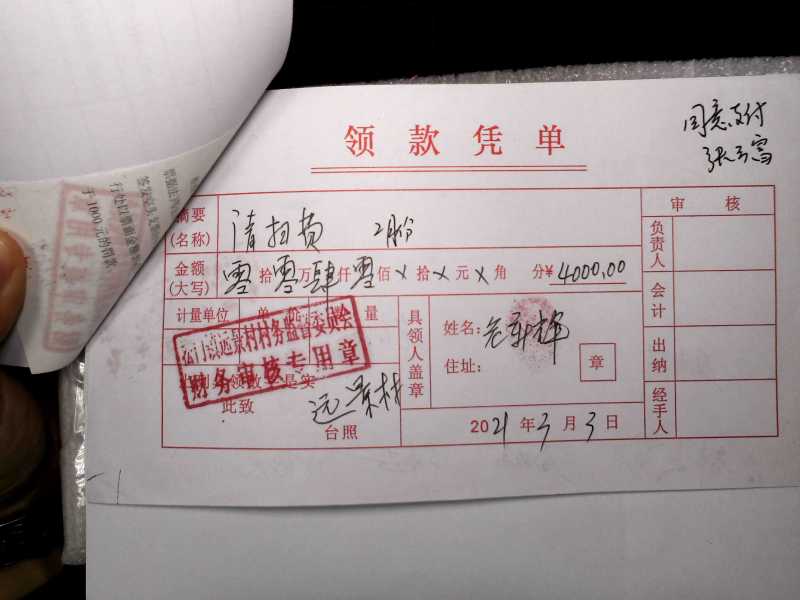 领款凭单
同意支付
摘要
(名称)
清扫费 2月份
审核
金额
(大写)
零拾零万肆仟零佰×拾×元×角 分¥4000.00
负责人
会计
出纳
经手人
计量单位 单 量
远景村村务监督委员会
财务审核专用章
是实
此致
远景村
台照
具领人盖章
姓名:
住址:
章
2021年3月3日
于1000元的罚款